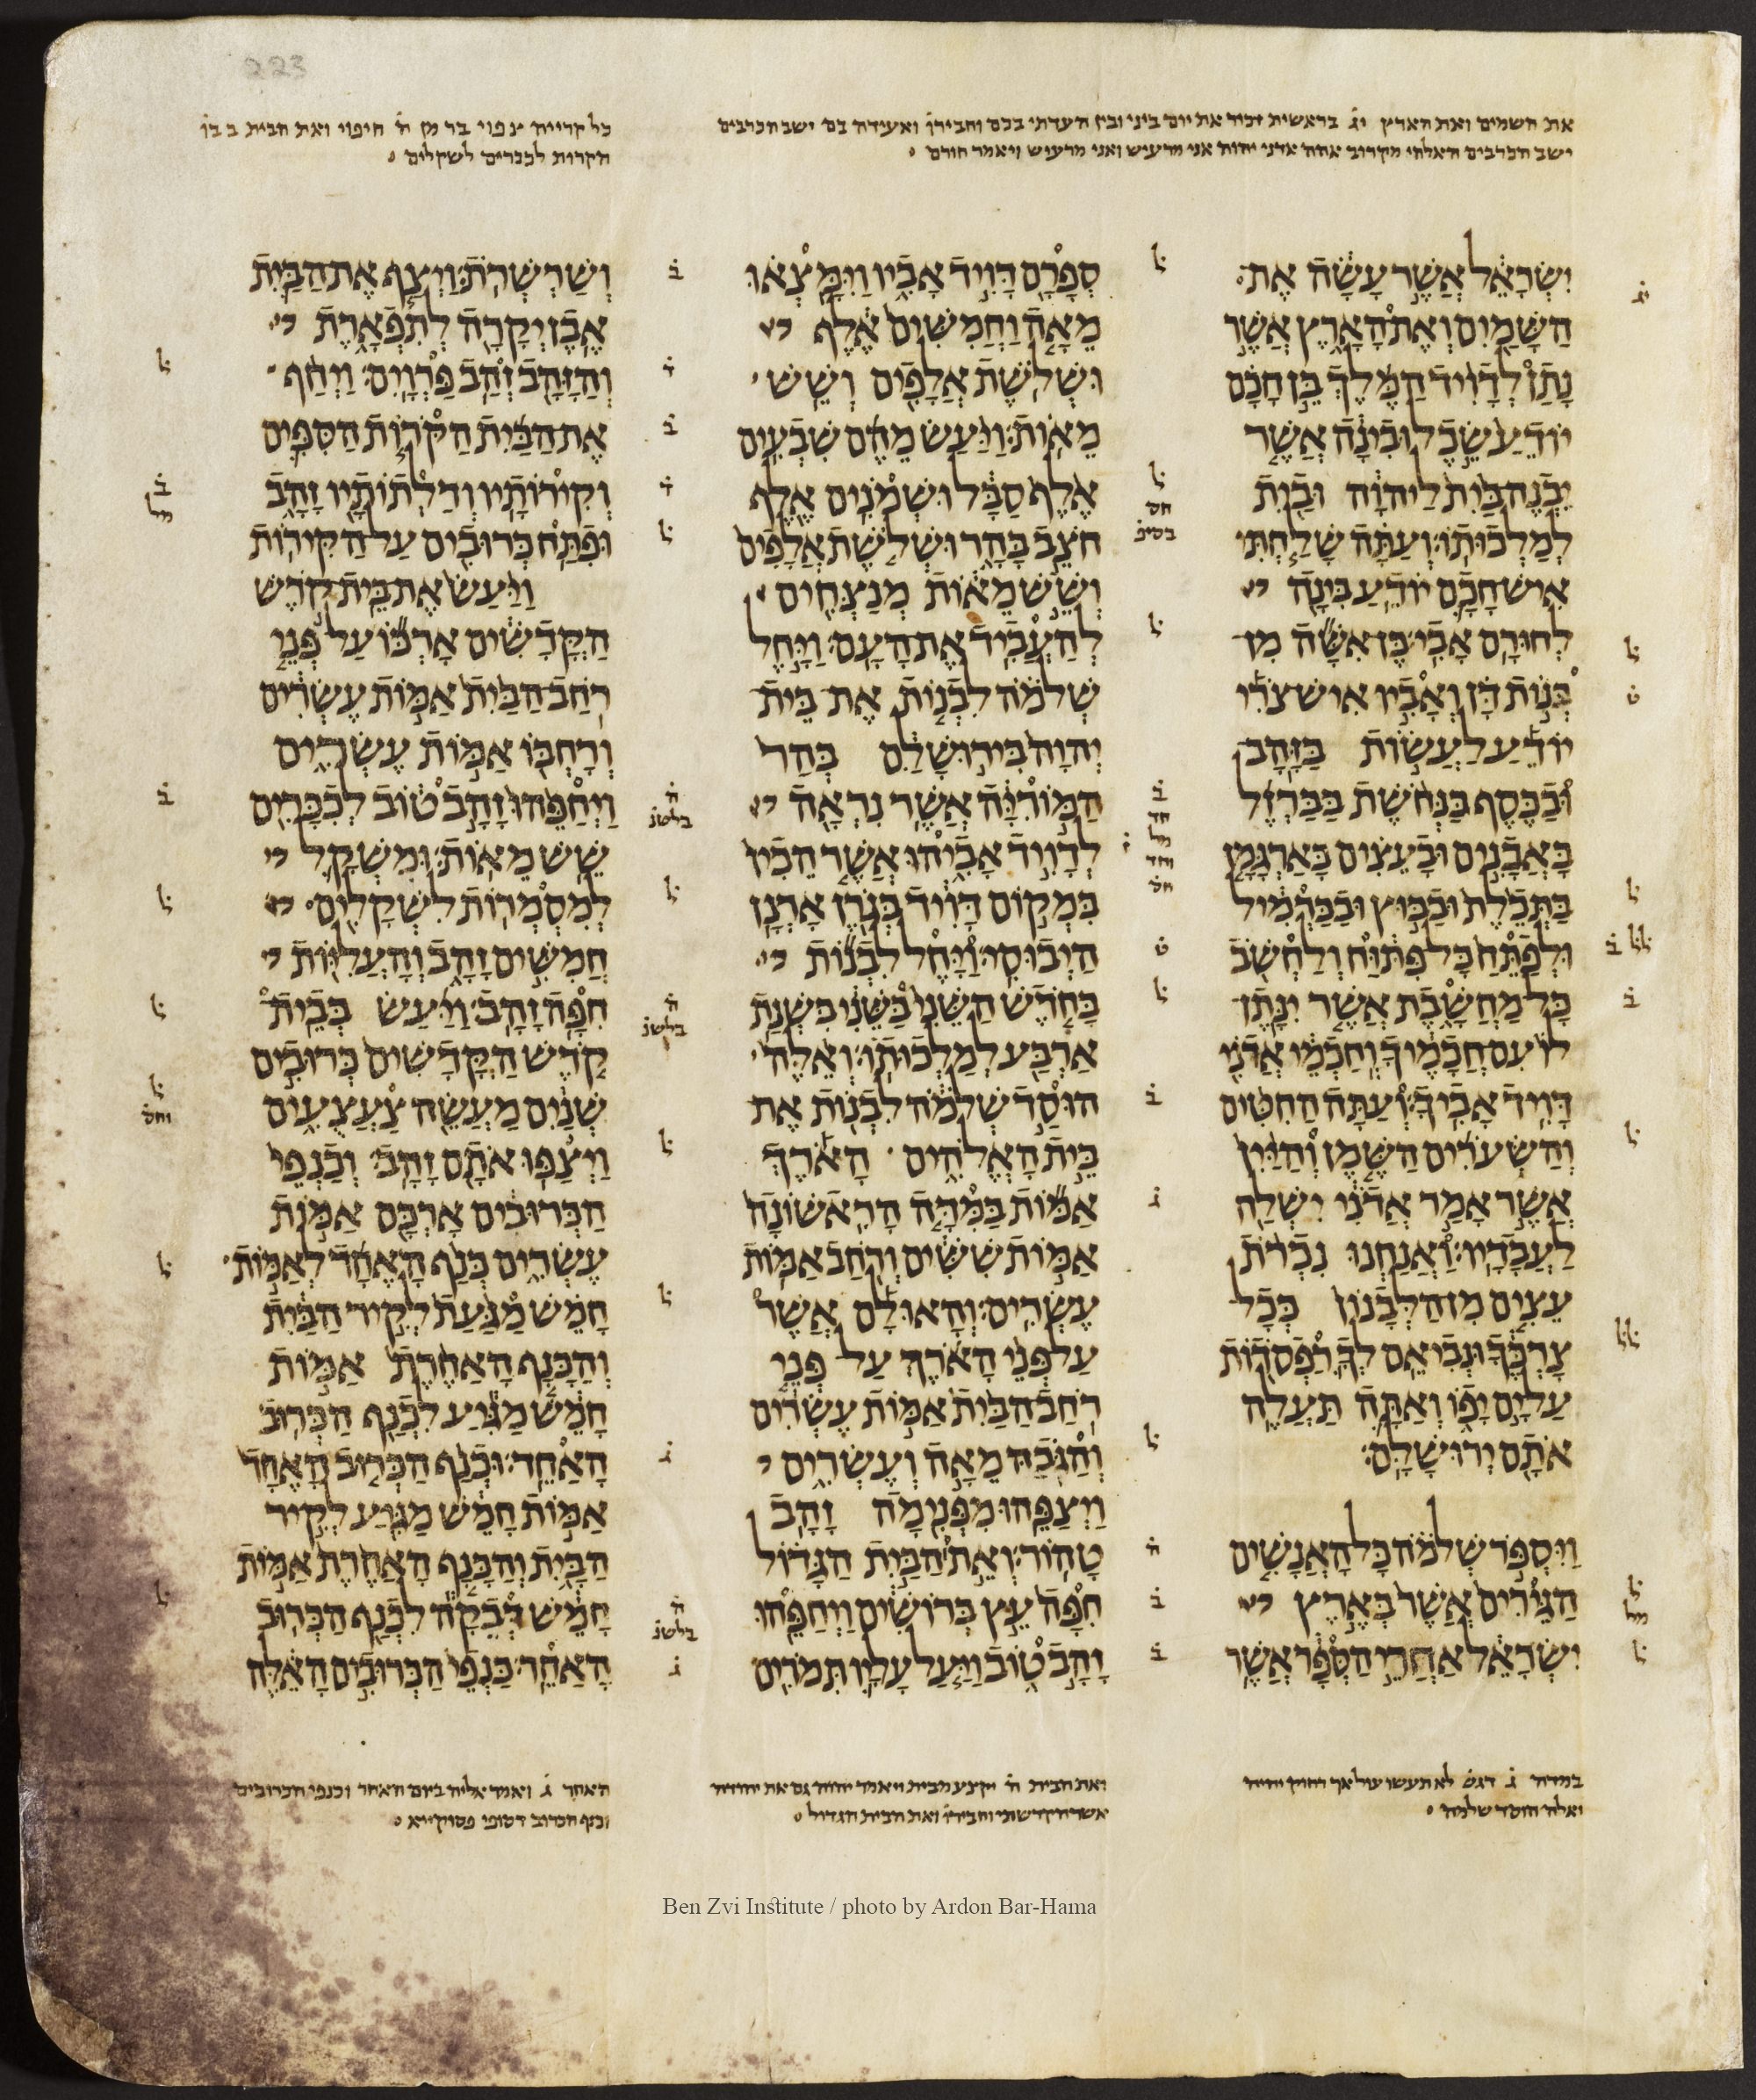 223
את השמים ואת הארץ יג בראשית זכיר את יום ביני ובין העדתי בכם וחבירו ואעידה בם ישב הכרבים
ישב הכרבים האלהי מקרוב אתה אדני יהוה אני מרעיש ואני מרעיש ויאמר חורם
כל קרייה צפוי בר מן ה חיפוי ואת הבית ב בו
הקרות לככרים לשקלים
ישראל אשר עשה את
השמים ואת הארץ אשר
נתן לדויד המלך בן חכם
יודע שכל ובינה אשר
יבנה בית ליהוה ובית
למלכותו׃ ועתה שלחתי
איש חכם יודע בינה
לחורם אבי׃ בן אשה מן
בנות דן ואביו איש צרי
יודע לעשות בזהב
ובכסף בנחשת בברזל
באבנים ובעצים בארגמן
בתכלת ובבוץ ובכרמיל
ולפתח כל פתוח ולחשב
כל מחשבת אשר ינתן
לו עם חכמיך וחכמי אדני
דויד אביך׃ ועתה החטים
והשערים השמן והיין
אשר אמר אדני ישלח
לעבדיו׃ ואנחנו נכרת
עצים מן הלבנון ככל
צרכך ונביאם לך רפסדות
על ים יפו ואתה תעלה
אתם ירושלם׃
ויספר שלמה כל האנשים
הגירים אשר בארץ
ישראל אחרי הספר אשר
ספרם דויד אביו וימצאו
מאה וחמשים אלף
ושלשת אלפים ושש
מאות׃ ויעש מהם שבעים
אלף סבל ושמנים אלף
חצב בהר ושלשת אלפים
ושש מאות מנצחים
להעביד את העם׃ ויחל
שלמה לבנות את בית
יהוה בירושלם בהר
המוריה אשר נראה
לדויד אביהו אשר הכין
במקום דויד בגרן ארנן
היבוסי׃ ויחל לבנות
בחדש השני בשני בשנת
ארבע למלכותו׃ ואלה
הוסד שלמה לבנות את
בית האלהים הארך
אמות במדה הראשונה
אמות ששים ורחב אמות
עשרים׃ והאולם אשר
על פני הארך על פני
רחב הבית אמות עשרים
והגבה מאה ועשרים
ויצפהו מפנימה זהב
טהור׃ ואת הבית הגדול
חפה עץ ברושים ויחפהו
זהב טוב ויעל עליו תמרים
ושרשרת׃ ויצף את הבית
אבן יקרה לתפארת
והזהב זהב פרוים׃ ויחף
את הבית הקרות הספים
וקירותיו ודלתותיו זהב
ופתח כרובים על הקירות
ויעש את בית קדש
הקדשים ארכו על פני
רחב הבית אמות עשרים
ורחבו אמות עשרים
ויחפהו זהב טוב לככרים
שש מאות׃ ומשקל
למסמרות לשקלים
חמשים זהב והעליות
חפה זהב׃ ויעש בבית
קדש הקדשים כרובים
שנים מעשה צעצעים
ויצפו אתם זהב׃ וכנפי
הכרובים ארכם אמות
עשרים כנף האחד לאמות
חמש מגעת לקיר הבית
והכנף האחרת אמות
חמש מגיע לכנף הכרוב
האחר׃ וכנף הכרוב האחד
אמות חמש מגיע לקיר
הבית והכנף האחרת אמות
חמש דבקה לכנף הכרוב
האחר׃ כנפי הכרובים האלה
במדה ג דגש לא תעשו עול אך רחוק יהיה
ואלה הוסד שלמה
ואת הבית ה ויקצע מבית ויאמר יהוה גם את יהודה
אשר הקדשתי וחבירו ואת הבית הגדול
האחר ג ואמר אליה ביום האחר וכנפי הכרובים
וכנף הכרוב דסופי פסוקייא
Ben Zvi Institute / photo by Ardon Bar-Hama